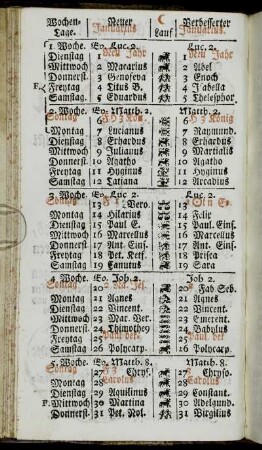 Wochen- Neuer ☾ Verbesserter
Tage. Januarius. Lauf Januarius.
1 Woche. Ev. Luc. 2. Luc. 2.
Dienstag 1 Neu Jahr 1 Neu Jahr
Mittwoch 2 Macarius 2 Abel
Donnerst. 3 Genoveva 3 Enoch
F. Freytag 4 Titus B. 4 Isabella
Samstag. 5 Eduardus 5 Thelesphor.
2. Woche. Ev. Matth. 2. Matth. 2.
Sontag 6 H 3 Kön. 6 H 3 Kön.
Montag 7 Lucianus 7 Raymund.
Dienstag 8 Erhardus 8 Erhardus
Mittwoch 9 Julianus 9 Martialis
Donnerst. 10 Agatho 10 Agatho
Freytag 11 Hyginus 11 Hyginus
Samstag 12 Tatiana 12 Arcadius
3. Woche. Ev. Luc. 2 Luc. 2.
Sontag 13 Vero. 13
Montag 14 Hilarius 14 Felix
Dienstag 15 Paul E. 15 Paul. Eins.
Mittwoch 16 Marcellus 16 Marcellus
Donnerst. 17 Ant. Eins. 17 Ant. Eins.
Freytag 18 Pet. Ketf. 18 Prisca
Samstag 19 Canutus 19 Sara
4. Woche. Ev. Joh. 2. Joh. 2.
Sontag 20 20 Fab Seb.
Montag 21 Agnes 21 Agnes
Dienstag 22 Vincent. 22 Vincent.
Mittwoch 23 Mar. Ver. 23 Emerent.
Donnerst. 24 Thimotheg 24 Babylus
Freytag 25 Paul bek. 25 Paul. bek
Samstag 26 Polycarp. 26 Polycarp.
5. Woche. Ev. Matth. 8. Matth. 8.
Sontag 27 Chrys. 27 Chryso.
Montag 28 Carolus 28 Carolus
Dienstag 29 Aquilinus 29 Constant.
F. Mittwoch 30 Martina 30 Adelgund.
Donnerst. 31 Pet. Nol. 31 Virgilius